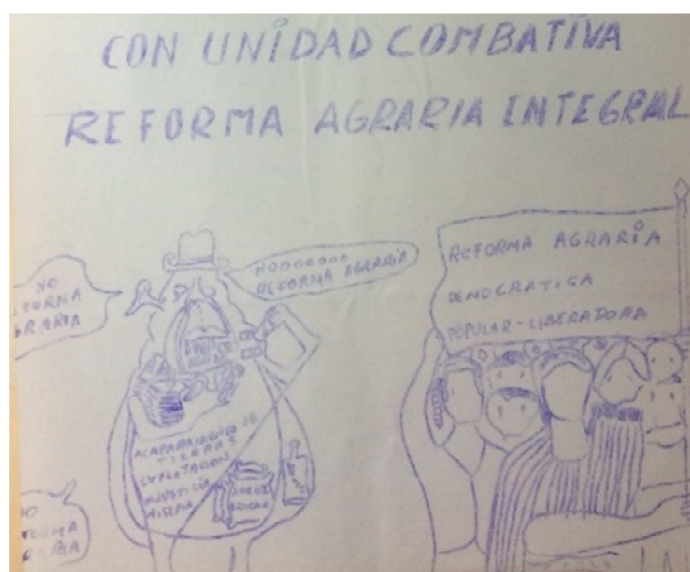 CON UNIDAD COMBATIVA
REFORMA AGRARIA INTEGRAL
NO
REFORMA
AGRARIA
NOOOOOOO
REFORMA AGRARIA
REFORMA AGRARIA
DEMOCRATICA
POPULAR-LIBERADORA
ACAPARAMIENTO DE
TIERRAS
EXPLOTACION
INJUSTICIA
ARROZ
AZUCAR
NO